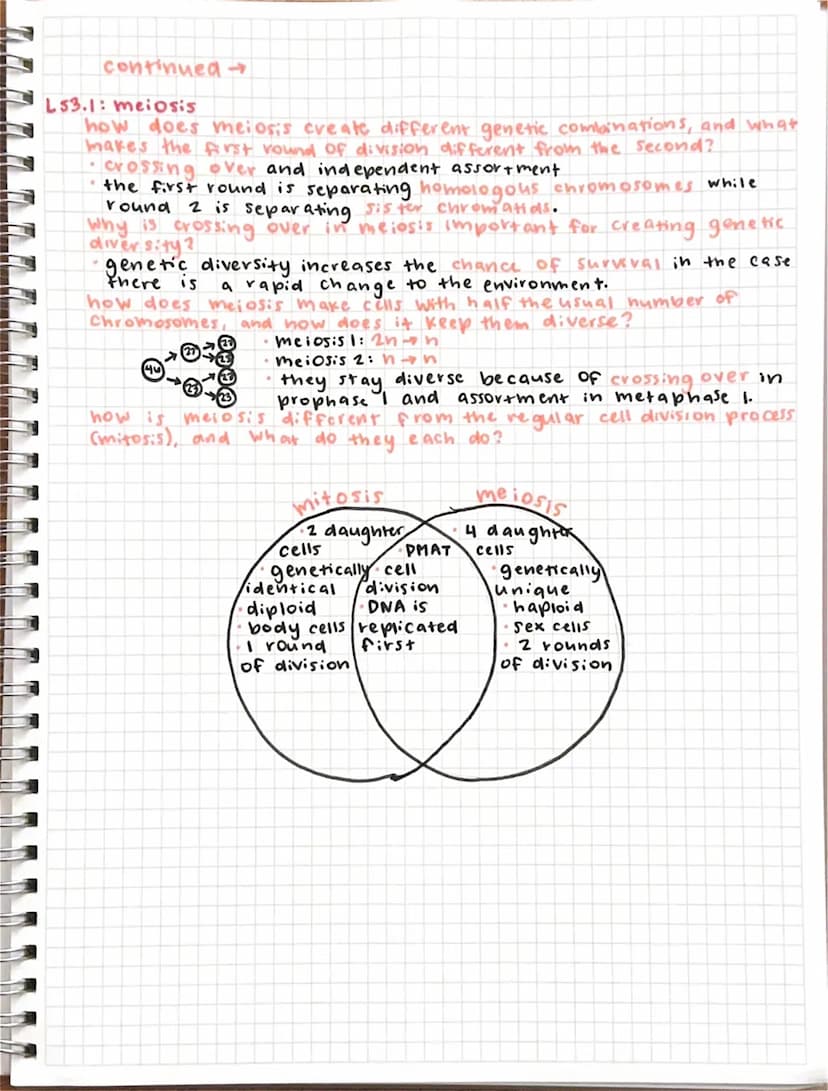 continued →
LS3.1: meiosis
how does meiosis create different genetic combinations, and what
makes the first round of division different from the second?
· crossing over and independent assortment
· the first round is separating homologous chromosomes while
round 2 is separating sister chromatids.
Why is crossing over in meiosis important for creating genetic
diversity?
· genetic diversity increases the chance of survival in the case
there is a rapid change to the environment.
how does meiosis make cells with half the usual number of
chromosomes, and how does it keep them diverse?
46 → 23 → 23
→ 23
→ 23 → 23
→ 23
· meiosis 1: 2n → n
· meiosis 2: n → n
· they stay diverse because of crossing over in
prophase 1 and assortment in metaphase 1.
how is meiosis different from the regular cell division process
(mitosis), and what do they each do?
mitosis
· 2 daughter
cells
· genetically
identical
· diploid
· body cells
· 1 round
of division
· PMAT
· cell
division
· DNA is
replicated
first
meiosis
· 4 daughter
cells
· genetically
unique
· haploid
· sex cells
· 2 rounds
of division